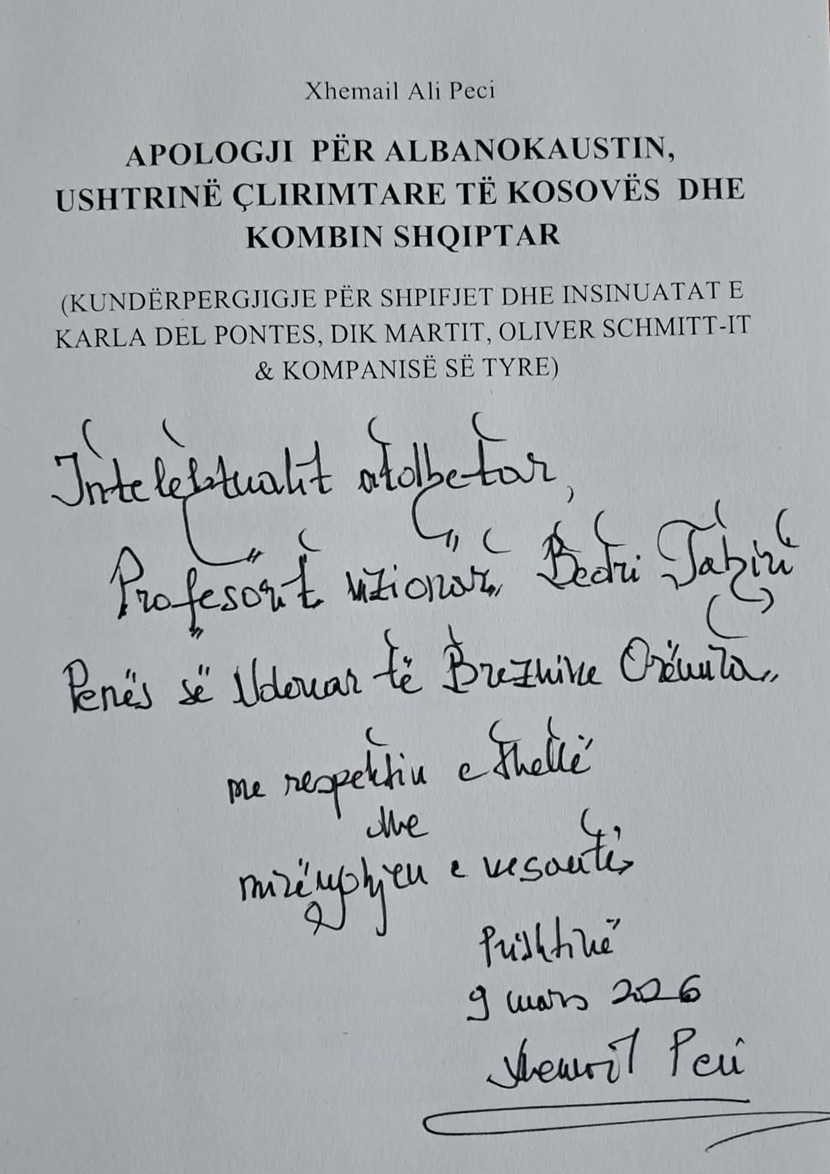 Xhemail Ali Peci
APOLOGJI PËR ALBANOKAUSTIN,
USHTRINË ÇLIRIMTARE TË KOSOVËS DHE
KOMBIN SHQIPTAR
(KUNDËRPERGJIGJE PËR SHPIFJET DHE INSINUATAT E
KARLA DEL PONTES, DIK MARTIT, OLIVER SCHMITT-IT
& KOMPANISË SË TYRE)
Intelektualit atdhetar,
Profesorit vizionar, Bedri Tahiri
Penës së Nderuar të Breznive
me respektin e thellë
dhe
mirënjohjen e
Prishtinë
9 mars 2026
Xhemail Peci